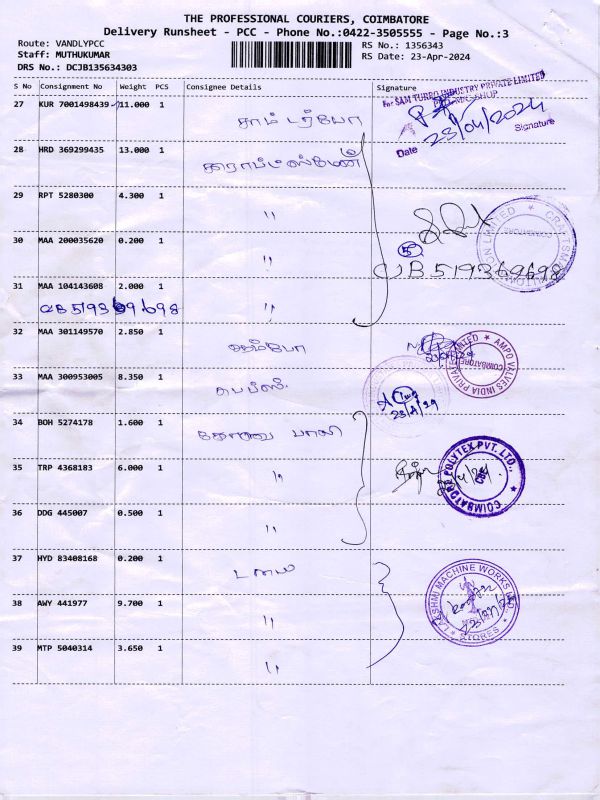 THE PROFESSIONAL COURIERS, COIMBATORE
Delivery Runsheet - PCC - Phone No.:0422-3505555 - Page No.:3
Route: VANDLYPCC
Staff: MUTHUKUMAR
DRS No.: DCJB135634303
RS No.: 1356343
RS Date: 23-Apr-2024
S No Consignment No Weight PCS Consignee Details Signature
27 KUR 7001498439 11.000 1 சாம் டர்போ
For SAM TURBO INDUSTRY PRIVATE LIMITED
23/04/2024
Date Signature
28 HRD 369299435 13.000 1
29 RPT 5280300 4.300 1 "
30 MAA 200035620 0.200 1 "
5
CB519369698
31 MAA 104143608 2.000 1 "
CB519369698
32 MAA 301149570 2.850 1
AMPO VALVES INDIA PRIVATE LIMITED
COIMBATORE
33 MAA 300953005 8.350 1
34 BOH 5274178 1.600 1 கோவை பாலி
35 TRP 4368183 6.000 1 "
COIMBATORE POLYTEX PVT. LTD.,
36 DDG 445007 0.500 1 "
37 HYD 83408168 0.200 1
38 AWY 441977 9.700 1 "
LAKSHMI MACHINE WORKS LTD.
STORES
39 MTP 5040314 3.650 1 "